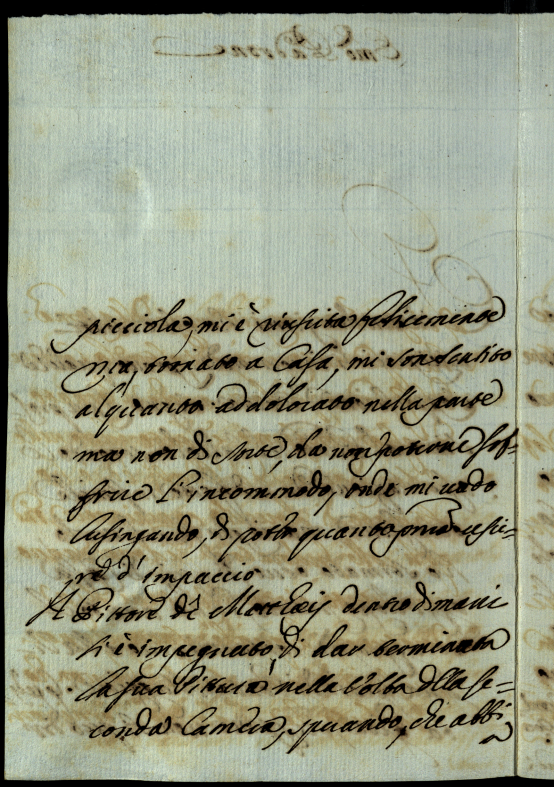 picciola, mi è riuscita felicemente
ma, tornato a Casa, mi son sentito
alquanto addolorato nella parte
ma non di sorte, da non poterne sof-
frire l'incommodo, onde mi vado
lusingando, di poter quanto prima usci-
re d'impaccio
Il Pittore de Mattheis dentro di mani
si è impegnato, di dar terminata
la sua Pittura nella volta della se-
conda Camera, sperando, che abbi